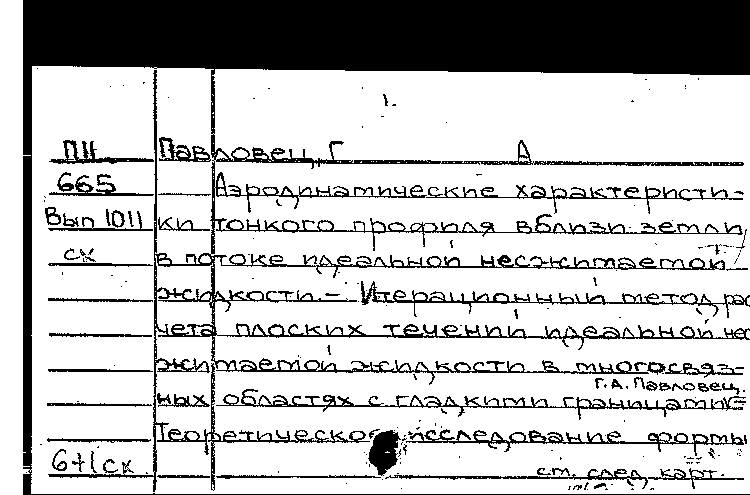 1.
ПН Павловец, Г А
665 Аэродинамические характеристи-
Вып 1011 ки тонкого профиля вблизи земли
ск в потоке идеальной несжимаемой
жидкости. - Итерационный метод рас
чета плоских течений идеальной нес
жимаемой жидкости в многосвяз-
Г.А. Павловец.
ных областях с гладкими границами
Теоретическое исследование формы
6+1ск см. след. карт.